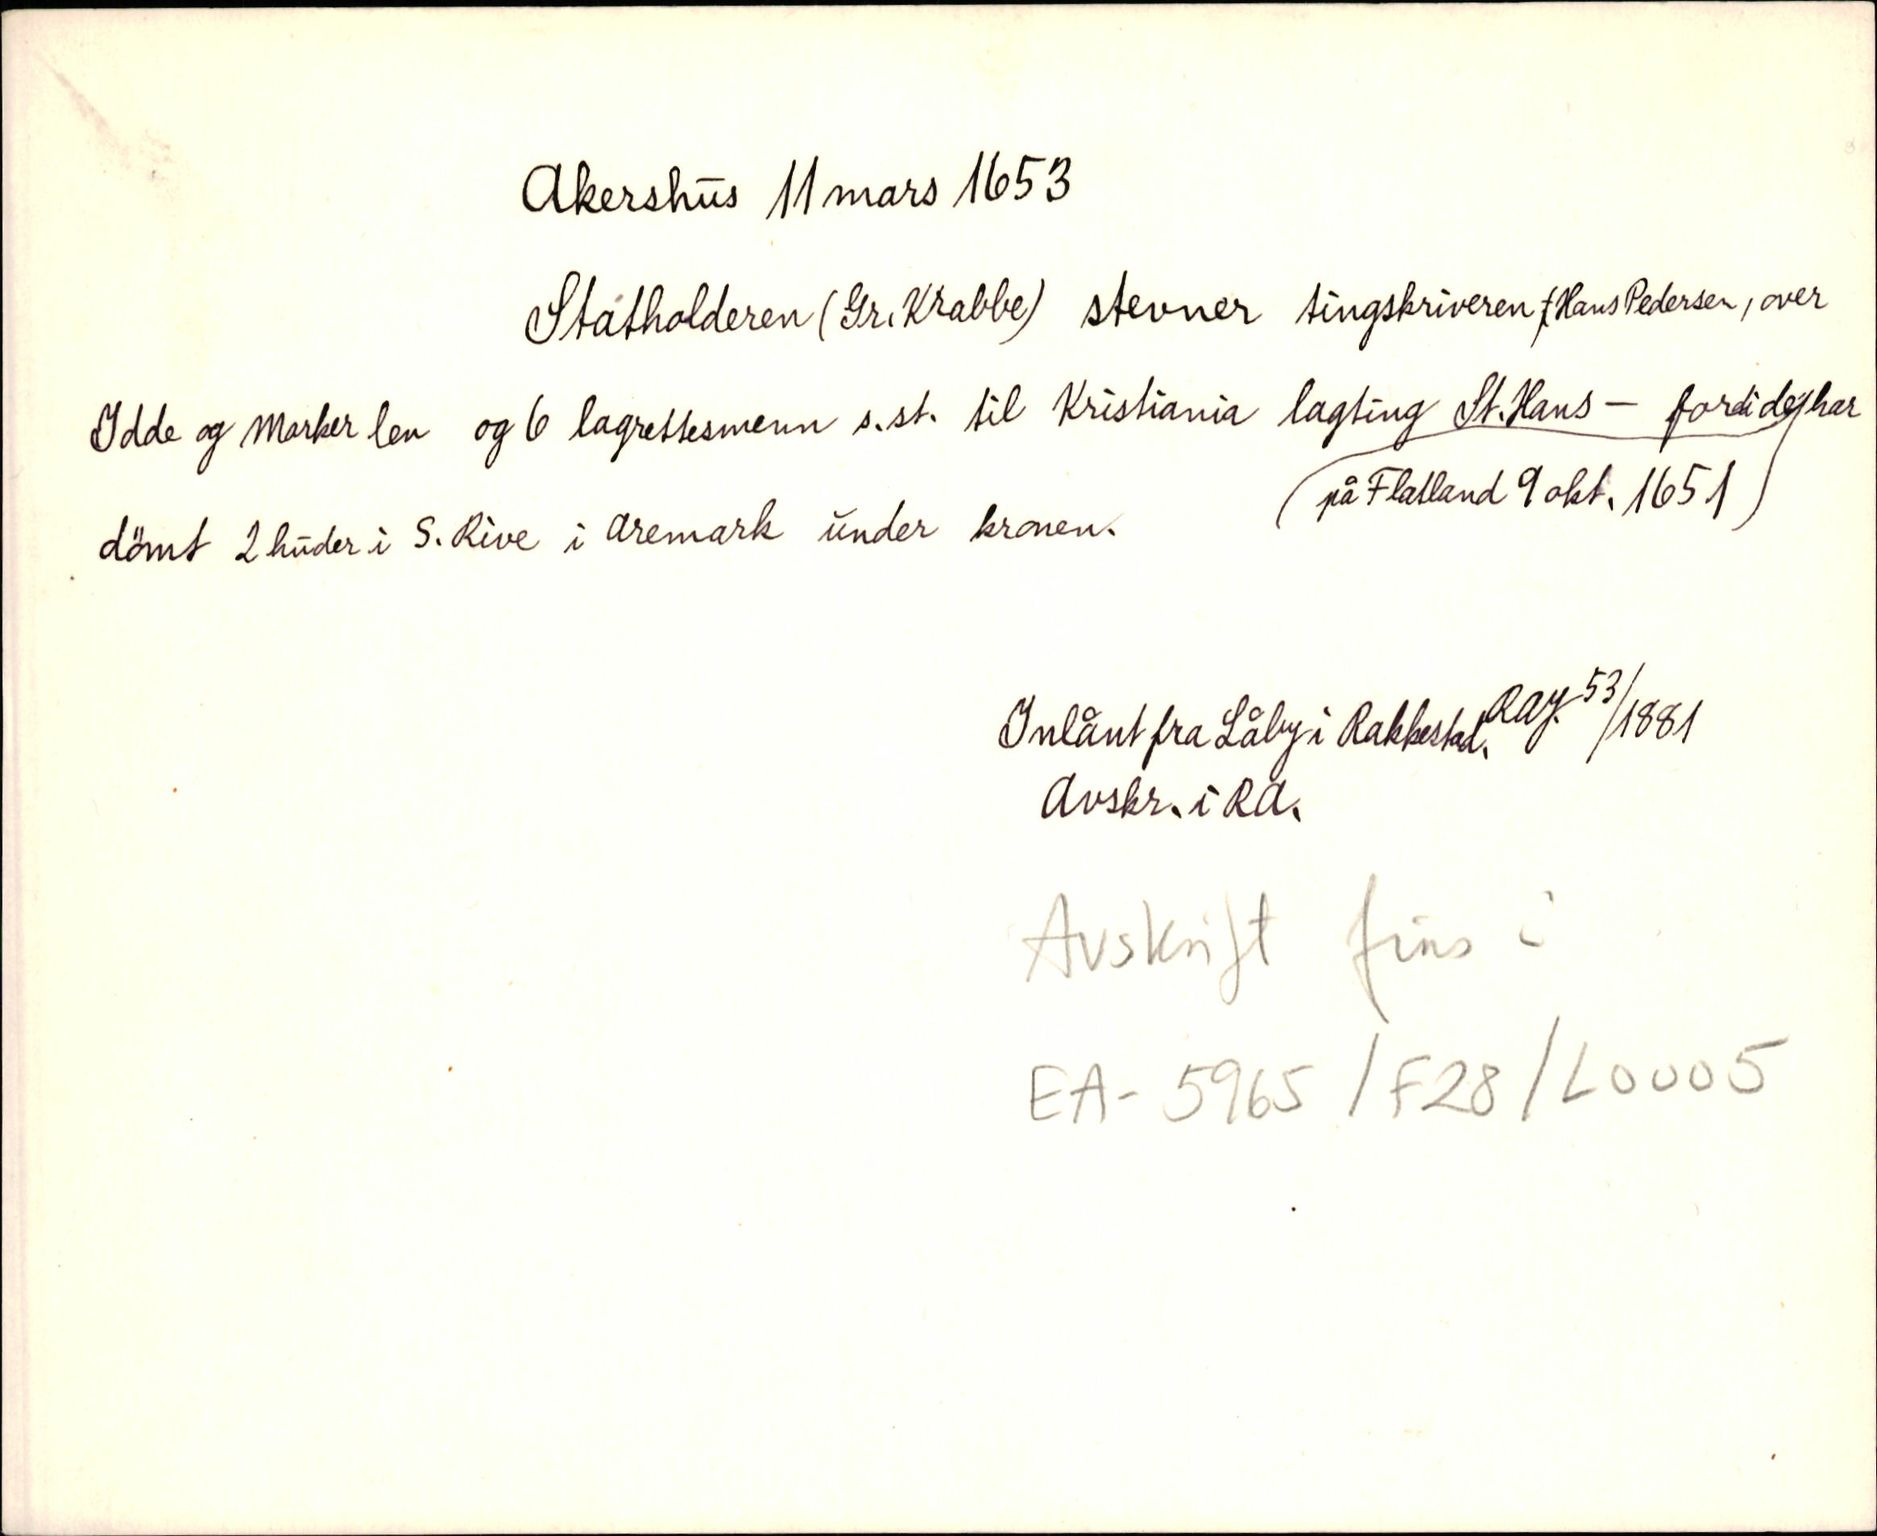 Akershūs 11 mars 1653
Statholderen (Gr. Krabbe) stevner tingskriveren, Hans Pedersen, over
Idde og Marker len og 6 lagrettesmenn s.st. til Kristiania lagting St. Hans — fordi de har
(på Flatland 9 okt. 1651)
dömt 2 hūder i S. Rive i Aremark ūnder kronen.
Inlånt fra Låby i Rakkestad. RAJ. 53/1881
Avskr. i RA.
Avskrift fins i
EA-5965/F28/L0005